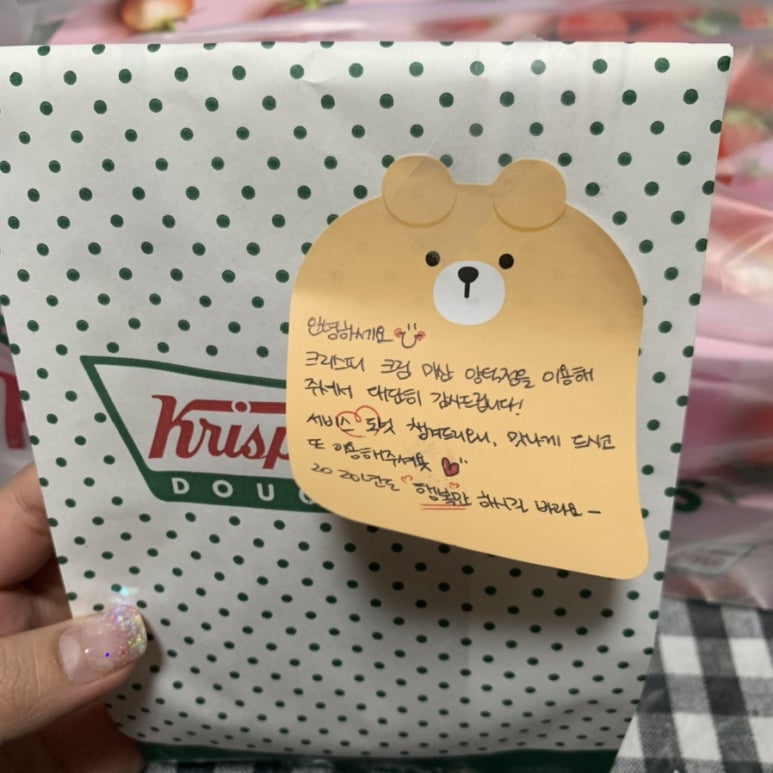 Krisp
DOUG
안녕하세요
크리스피 크림 마산 양덕점을 이용해
주셔서 대단히 감사드립니다!
서비스 도넛 챙겨드리오니, 맛나게 드시고
또 이용해주셔욧
2020년도 행복만 하시길 바라요~